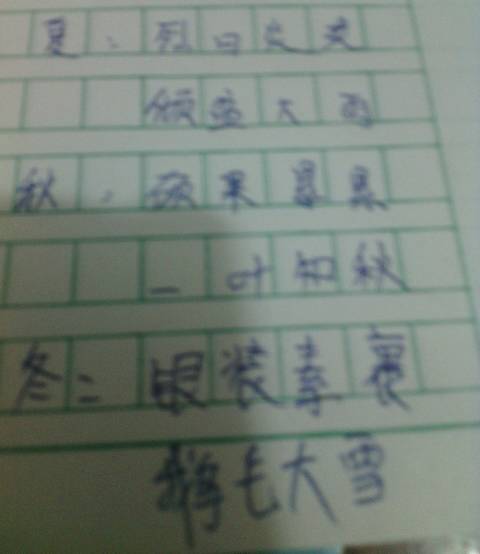 夏:烈日炎炎
倾盆大雨
秋:硕果累累
一叶知秋
冬:银装素裹
鹅毛大雪